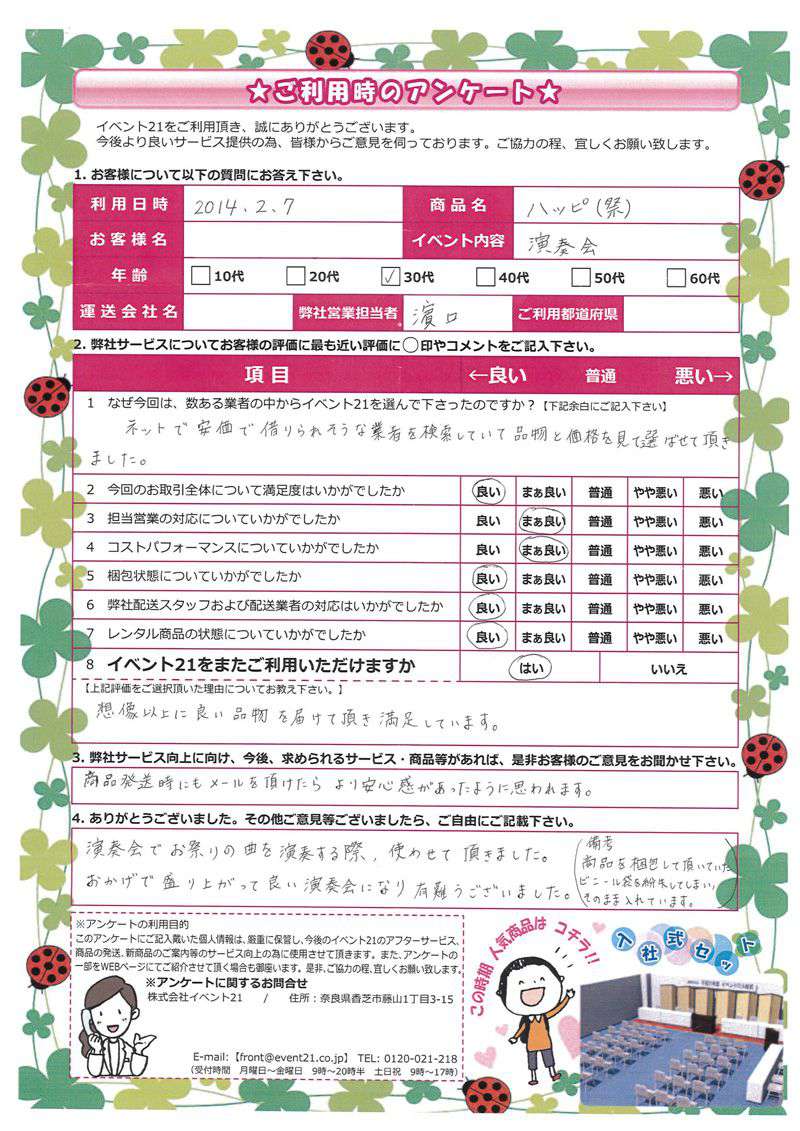 ★ご利用時のアンケート★
イベント21をご利用頂き、誠にありがとうございます。
今後より良いサービス提供の為、皆様からご意見を伺っております。ご協力の程、宜しくお願い致します。
1. お客様について以下の質問にお答え下さい。
利用日時 2014.2.7 商品名 ハッピ(祭)
お客様名 イベント内容 演奏会
年齢 □10代 □20代 ☑30代 □40代 □50代 □60代
運送会社名 弊社営業担当者 濱口 ご利用都道府県
2. 弊社サービスについてお客様の評価に最も近い評価に◯印やコメントをご記入下さい。
項目 ←良い 普通 悪い→
1 なぜ今回は、数ある業者の中からイベント21を選んで下さったのですか?【下記余白にご記入下さい】
ネットで安価で借りられそうな業者を検索していて品物と価格を見て選ばせて頂き
ました。
2 今回のお取引全体について満足度はいかがでしたか 良い まぁ良い 普通 やや悪い 悪い
3 担当営業の対応についていかがでしたか 良い まぁ良い 普通 やや悪い 悪い
4 コストパフォーマンスについていかがでしたか 良い まぁ良い 普通 やや悪い 悪い
5 梱包状態についていかがでしたか 良い まぁ良い 普通 やや悪い 悪い
6 弊社配送スタッフおよび配送業者の対応はいかがでしたか 良い まぁ良い 普通 やや悪い 悪い
7 レンタル商品の状態についていかがでしたか 良い まぁ良い 普通 やや悪い 悪い
8 イベント21をまたご利用いただけますか はい いいえ
【上記評価をご選択頂いた理由についてお教え下さい。】
想像以上に良い品物を届けて頂き満足しています。
3. 弊社サービス向上に向け、今後、求められるサービス・商品等があれば、是非お客様のご意見をお聞かせ下さい。
商品発送時にもメールを頂けたらより安心感があったように思われます。
4. ありがとうございました。その他ご意見等ございましたら、ご自由にご記載下さい。
演奏会でお祭りの曲を演奏する際、使わせて頂きました。
おかげで盛り上がって良い演奏会になり有難うございました。
備考
商品を梱包して頂いていた
ビニール袋を紛失してしまい、
そのまま入れています。
※アンケートの利用目的
このアンケートにご記入戴いた個人情報は、厳重に保管し、今後のイベント21のアフターサービス、
商品の発送、新商品のご案内等のサービス向上の為に使用させて頂きます。また、アンケートの
一部をWEBページにてご紹介させて頂く場合も御座います。是非、ご協力の程、宜しくお願い致します。
※アンケートに関するお問合せ
株式会社イベント21 / 住所:奈良県香芝市藤山1丁目3-15
E-mail:【front@event21.co.jp】 TEL: 0120-021-218
(受付時間 月曜日～金曜日 9時～20時半 土日祝 9時～17時)
この時期 人気商品は コチラ!!
入社式セット